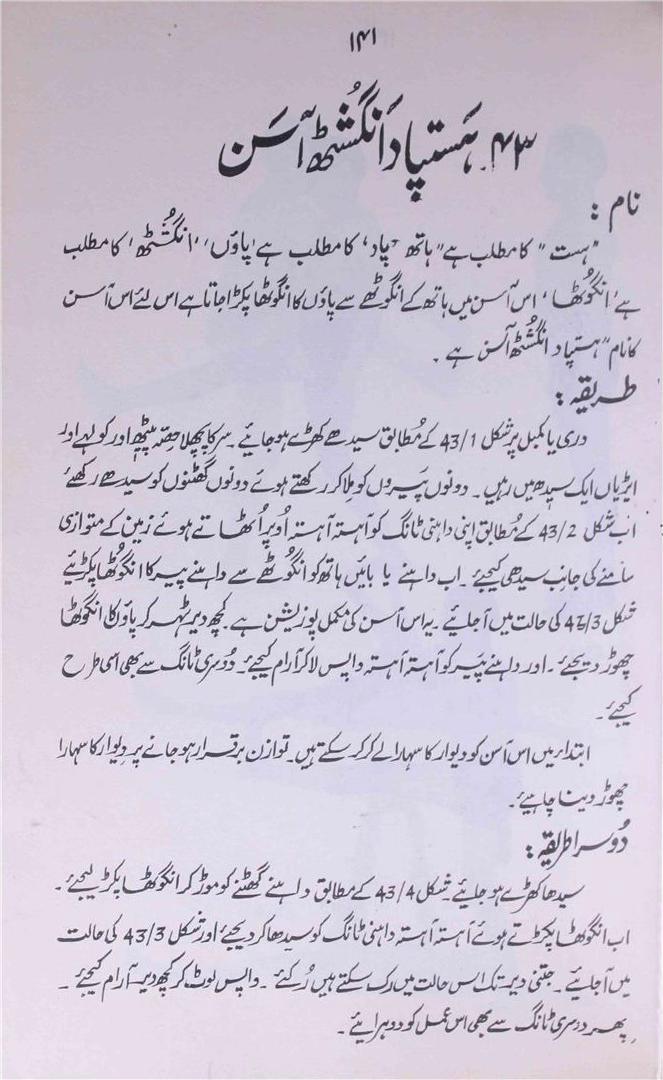 ۱۴۱
۴۳. ہَستپاد اَنگُشٹھ آسَن
نام :
"ہست" کا مطلب ہے "ہاتھ 'پاد' کا مطلب ہے 'پاؤں' 'انگُشٹھ' کا مطلب
ہے 'انگوُٹھا' اس آسن میں ہاتھ کے انگوٹھے سے پاؤں کا انگوٹھا پکڑا جاتا ہے اس لئے اس آسن
کا نام "ہستپاد انگُشٹھ آسن ہے ۔
طریقہ :
دری یا کمبل پر شکل 43/1 کے مُطابق سیدھے کھڑے ہو جائیے۔ سر کا پچھلا حصّہ پیٹھ اور کولہے اور
ایڑیاں ایک سیدھ میں رہیں۔ دونوں پَیروں کو ملا کر رکھتے ہوئے دونوں گھٹنوں کو سیدھے رکھئے
اب شکل 43/2 کے مُطابق اپنی داہنی ٹانگ کو آہستہ آہستہ اُوپر اُٹھاتے ہوئے زمین کے متوازی
سامنے کی جانب سیدھی کیجئے۔ اب داہنے یا بائیں ہاتھ کو انگوُٹھے سے داہنے پیر کا انگوُٹھا پکڑئیے
شکل 43/3 کی حالت میں آجائیے۔ یہ اس آسن کی مکمل پوزیشن ہے۔ کچھ دیر ٹہر کر پاؤں کا انگوٹھا
چھوڑ دیجئے۔ اور داہنے پَیر کو آہستہ آہستہ واپس لا کر آرام کیجئے۔ دُوسری ٹانگ سے بھی اسی طرح
کیجئے۔
ابتدار میں اس آسن کو دیوار کا سہارا لے کر کر سکتے ہیں۔ توازن برقرار ہو جانے پر دیوار کا سہارا
چھوڑ دینا چاہیئے۔
دُوسرا طریقہ :
سیدھا کھڑے ہو جائیے۔ شکل 43/4 کے مطابق داہنے گھٹنے کو موڑ کر انگوٹھا پکڑ لیجئے۔
اب انگوٹھا پکڑتے ہوئے آہستہ آہستہ داہنی ٹانگ کو سیدھا کر دیجئے اور شکل 43/3 کی حالت
میں آجائیے۔ جتنی دیر تک اس حالت میں رک سکتے ہیں رُکئے۔ واپس لوٹ کر کچھ دیر آرام کیجئے۔
پھر دوسری ٹانگ سے بھی اس عمل کو دوہرائیے۔